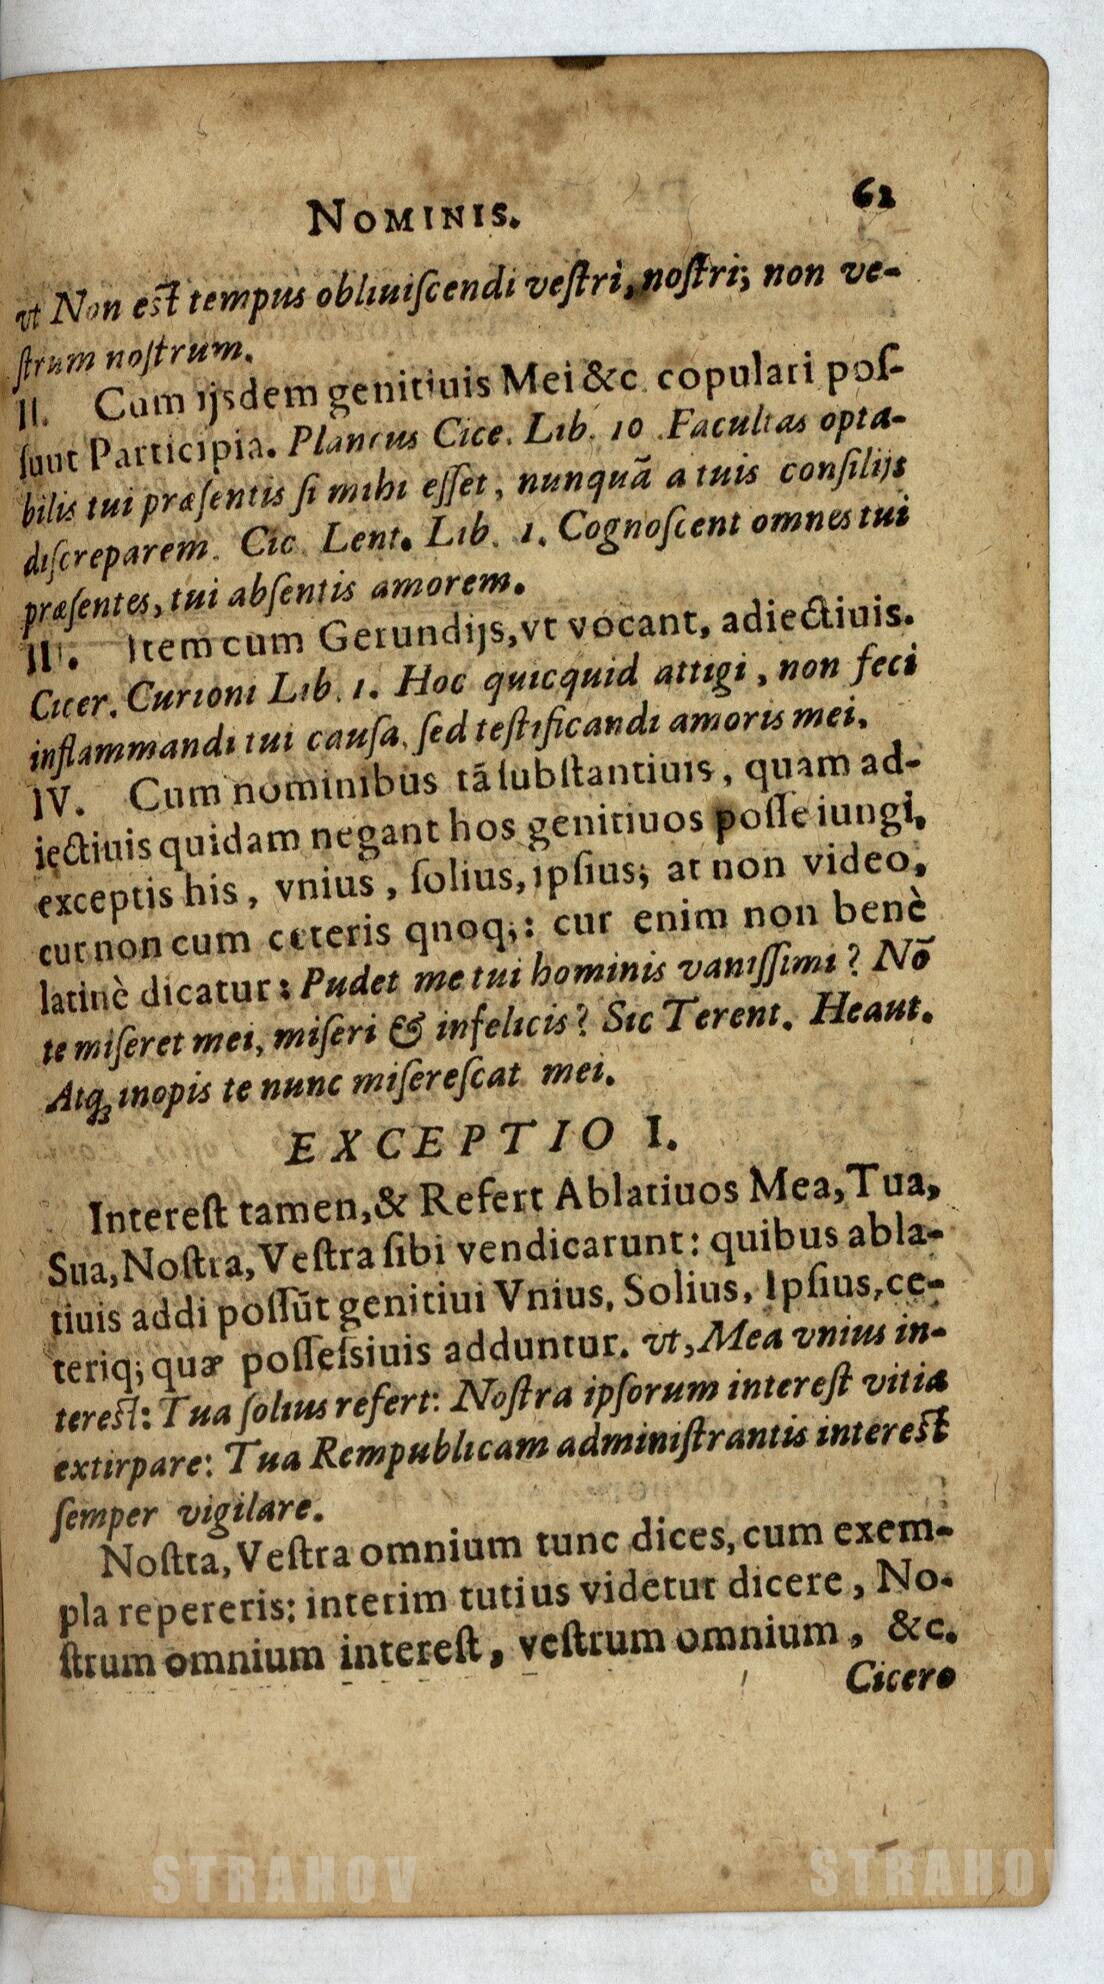 NOMINIS. 62
vt Non est tempus obliuiſcendi veſtri, noſtri; non ve-
ſtrum noſtrum.
II. Cum ijsdem genitiuis Mei &c. copulari poſ-
ſunt Participia. Plancus Cice. Lib. 10. Facultas opta-
bilis tui præſentis ſi mihi eſſet, nunquã a tuis conſilijs
diſcreparem. Cic. Lent. Lib. 1. Cognoſcent omnes tui
præſentes, tui abſentis amorem.
III. Item cum Gerundijs, vt vocant, adiectiuis.
Cicer. Curioni Lib. 1. Hoc quicquid attigi, non feci
inflammandi tui cauſa, ſed teſtificandi amoris mei.
IV. Cum nominibus tã ſubſtantiuis, quam ad-
iectiuis quidam negant hos genitiuos poſſe iungi,
exceptis his, vnius, ſolius, ipſius; at non video,
cur non cum ceteris qnoq;: cur enim non benè
latinè dicatur: Pudet me tui hominis vaniſſimi? Nõ
te miſeret mei, miſeri & infelicis? Sic Terent. Heaut.
Atq; inopis te nunc miſereſcat mei.
EXCEPTIO I.
Intereſt tamen, & Refert Ablatiuos Mea, Tua,
Sua, Noſtra, Veſtra ſibi vendicarunt: quibus abla-
tiuis addi poſſũt genitiui Vnius, Solius, Ipſius, ce-
teriq; quæ poſſeſsiuis adduntur. vt, Mea vnius in-
tereſt: Tua ſolius refert: Noſtra ipſorum intereſt vitia
extirpare: Tua Rempublicam adminiſtrantis intereſt
ſemper vigilare.
Noſtra, Veſtra omnium tunc dices, cum exem-
pla repereris: interim tutius videtur dicere, No-
ſtrum omnium intereſt, veſtrum omnium, &c.
Cicero
STRAHOV STRAHOV